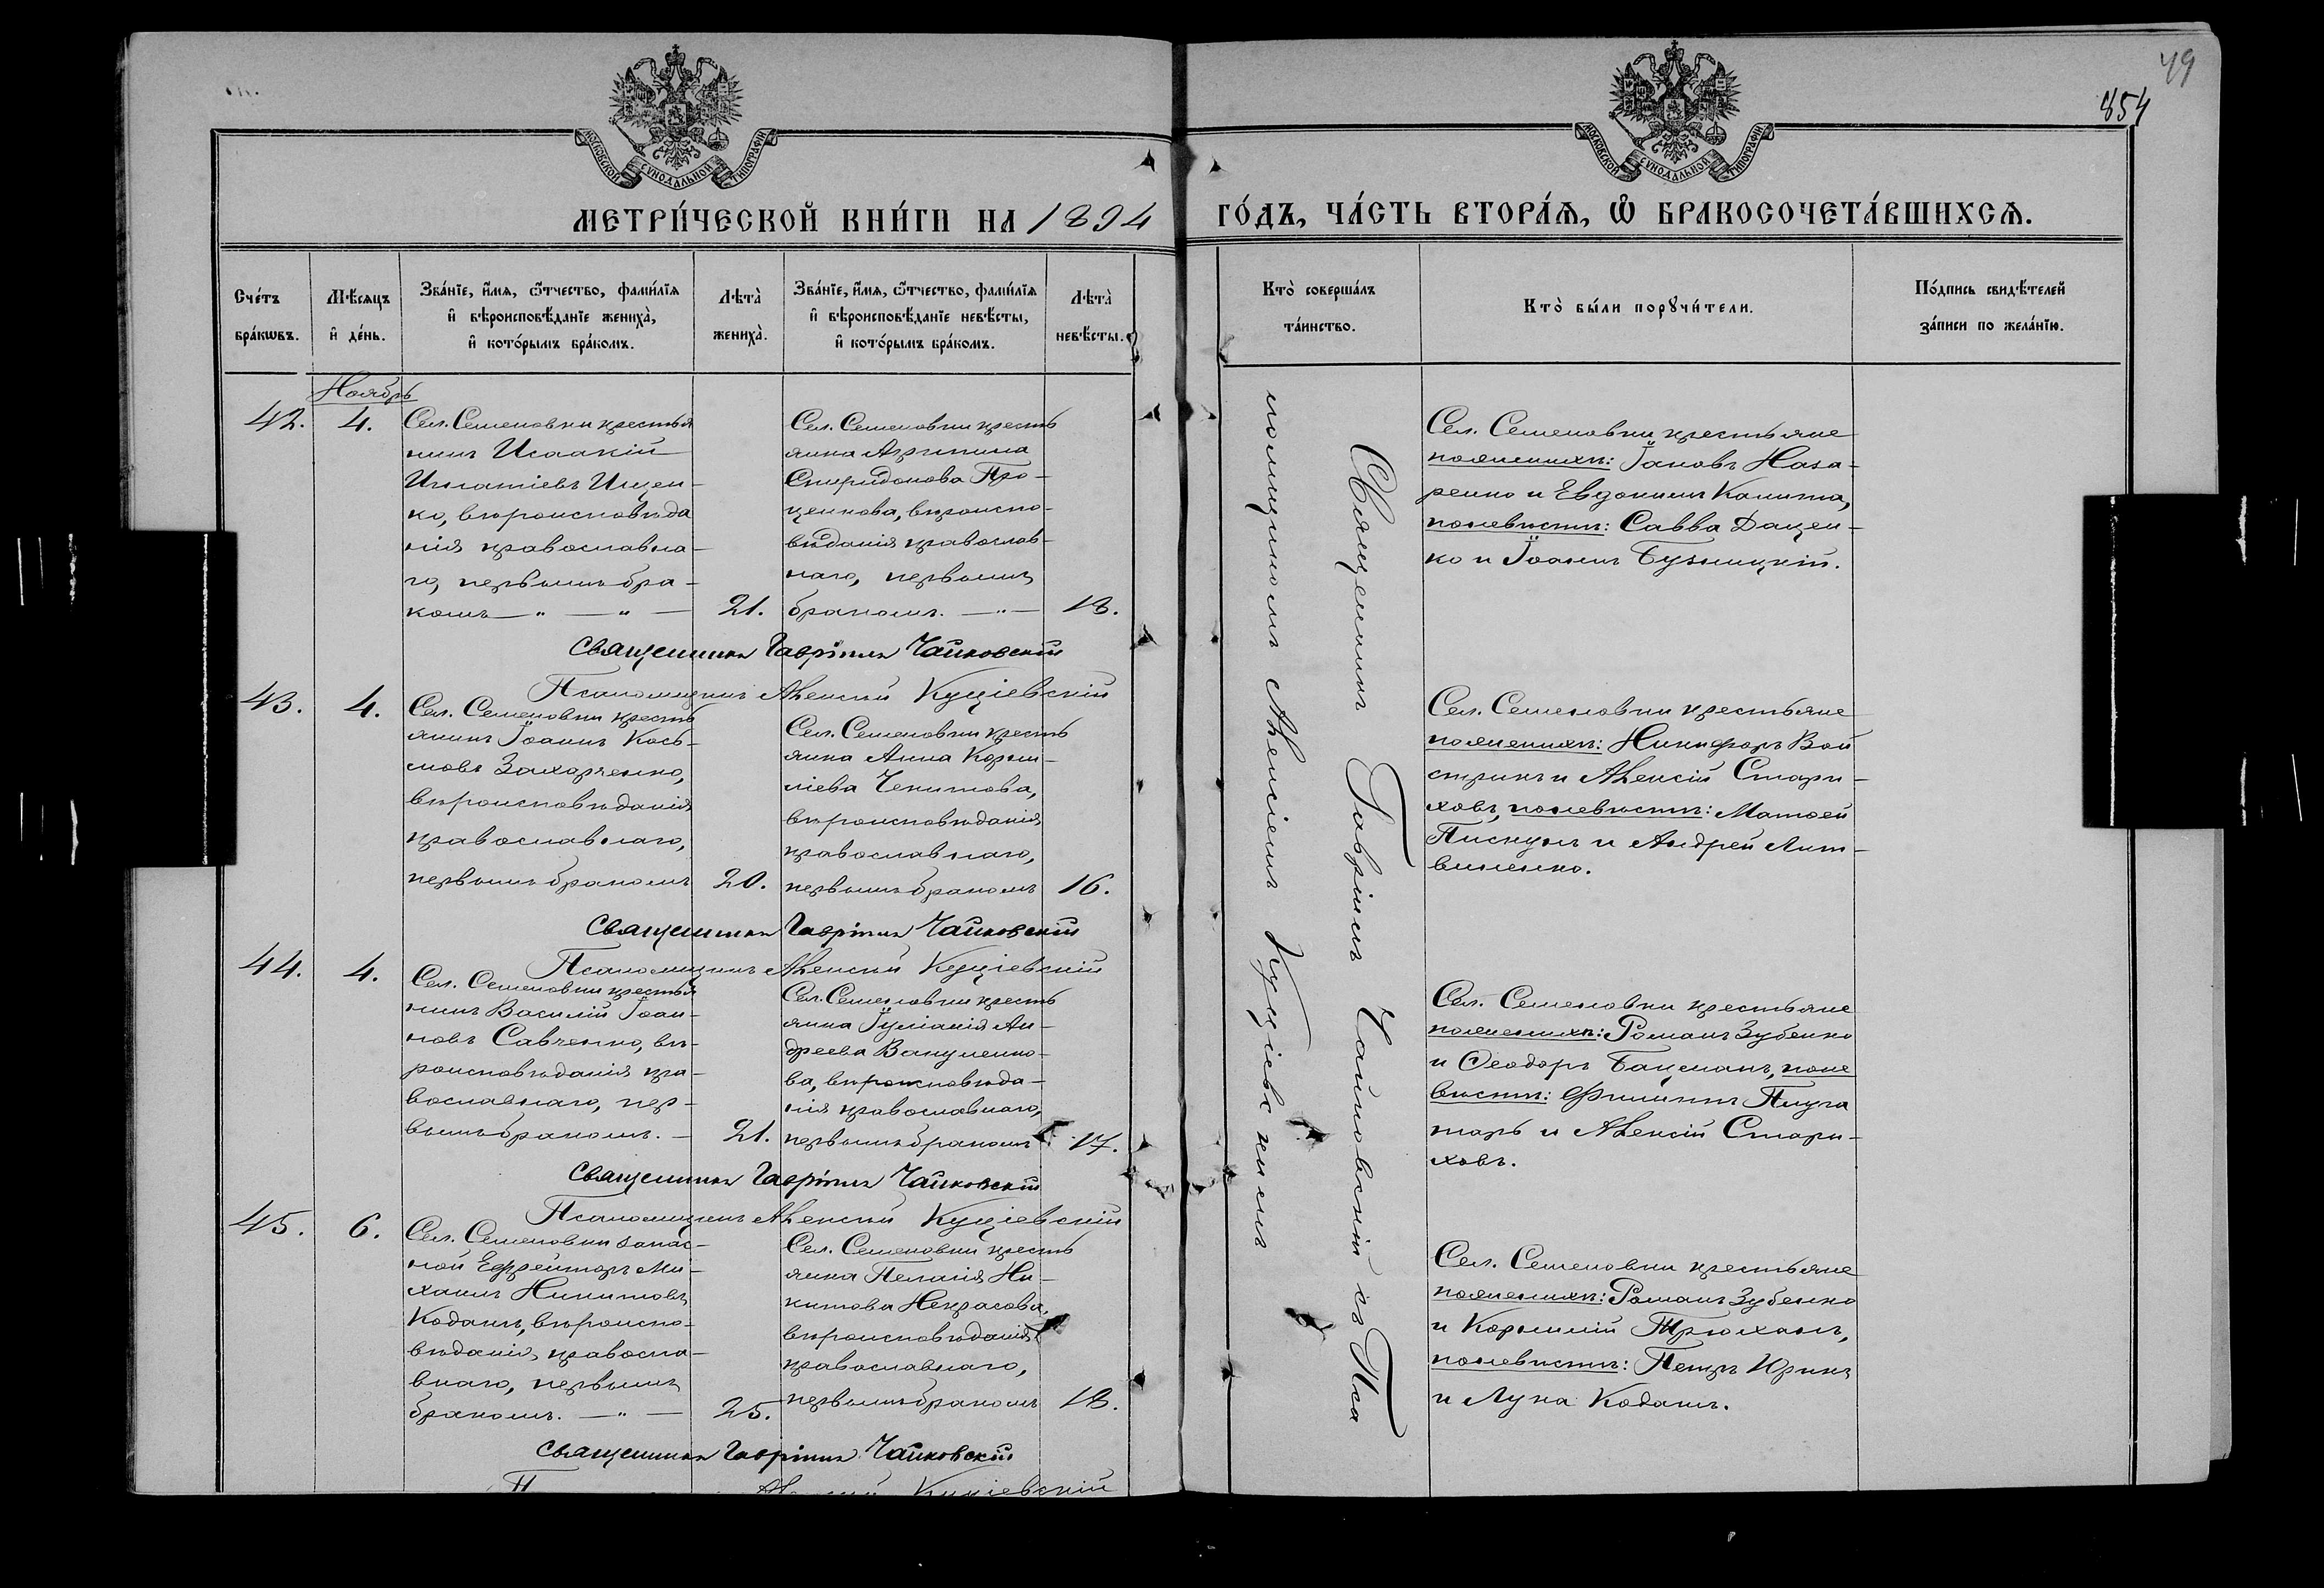 49
854
МОСКОВСКОЙ СУНОДАЛЬНОЙ ТИПОГРАФІИ
МОСКОВСКОЙ СУНОДАЛЬНОЙ ТИПОГРАФІИ
МЕТРИ́ЧЕСКОЙ КНИ́ГИ НА 1894
ГО́ДЪ, ЧА́СТЬ ВТОРА́Ѧ, Ѽ БРАКОСОЧЕТА́ВШИХСѦ.
Сче́тъ бра́кѡвъ.
Мѣ́сѧцъ и҆ де́нь.
Зва́нїе, и҆́мѧ, ѻ҆́тчество, фами́лїѧ
и҆ вѣроисповѣ́данїе жениха̀,
и҆ кото́рымъ бра́комъ.
Лѣта̀ жениха̀.
Зва́нїе, и҆́мѧ, ѻ҆́тчество, фами́лїѧ
и҆ вѣроисповѣ́данїе невѣ́сты,
и҆ кото́рымъ бра́комъ.
Лѣта̀ невѣ́сты.
Кто̀ соверша́лъ
та́инство.
Кто̀ бы́ли порꙋчи́тели.
По́дпись свидѣ́телей
за́писи по жела́нїю.
Ноябрь
42.
4.
Сел. Семеновки крестья
нинъ Исаакій
Игнатіевъ Ищен-
ко, вѣроисповѣда
нія православна-
го, первымъ бра-
комъ — " — " —
21.
Сел. Семеновки кресть
янка Агрипина
Спиридонова Про-
ценкова, вѣроиспо-
вѣданія православ-
наго, первымъ
бракомъ. — " —
18.
Сел. Семеновки крестьяне
по женихѣ: Іаковъ Наза-
ренко и Евдокимъ Калита,
по невѣстѣ: Савва Дацен-
ко и Іоаннъ Бузницкій.
Священникъ Гавріилъ Чайковскій
Псаломщикъ Алексій Куціевскій
43.
4.
Сел. Семеновки кресть
янинъ Іоаннъ Кось-
мовъ Захарченко,
вѣроисповѣданія
православнаго,
первымъ бракомъ
20.
Сел. Семеновки кресть
янка Анна Корни-
ліева Чекитова,
вѣроисповѣданія
православнаго,
первымъ бракомъ
16.
Сел. Семеновки крестьяне
по женихѣ: Никифоръ Вой
стрикъ и Алексій Стари-
ковъ, по невѣстѣ: Матѳей
Пискунъ и Андрей Лит-
виненко.
Священникъ Гавріилъ Чайковскій
Псаломщикъ Алексій Куціевскій
44.
4.
Сел. Семеновки крестья
нинъ Василій Іоан-
новъ Савченко, вѣ-
роисповѣданія пра-
вославнаго, пер-
вымъ бракомъ. —
21.
Сел. Семеновки кресть
янка Іуліанія Ан-
дреева Вакуленко-
ва, вѣроисповѣда-
нія православнаго,
первымъ бракомъ
17.
Сел. Семеновки крестьяне
по женихѣ: Романъ Зубенко
и Ѳеодоръ Бацманъ, по не
вѣстѣ: Филиппъ Плуга
тарь и Алексій Стари-
ковъ.
Священникъ Гавріилъ Чайковскій
Псаломщикъ Алексій Куціевскій
45.
6.
Сел. Семеновки запас-
ной Ефрейторъ Ми-
хаилъ Никитовъ
Коданъ, вѣроиспо-
вѣданія, правосла-
внаго, первымъ
бракомъ. — " —
25.
Сел. Семеновки кресть
янка Пелагія Ни-
китова Некрасова,
вѣроисповѣданія
православнаго,
первымъ бракомъ
18.
Сел. Семеновки крестьяне
по женихѣ: Романъ Зубенко
и Корнилій Трюханъ,
по невѣстѣ: Петръ Юрикъ
и Лука Коданъ.
Священникъ Гавріилъ Чайковскій
Алексій Куціевскій
Священникъ Гавріилъ Чайковскій съ Пса
ломщикомъ Алексіемъ Куціевскимъ